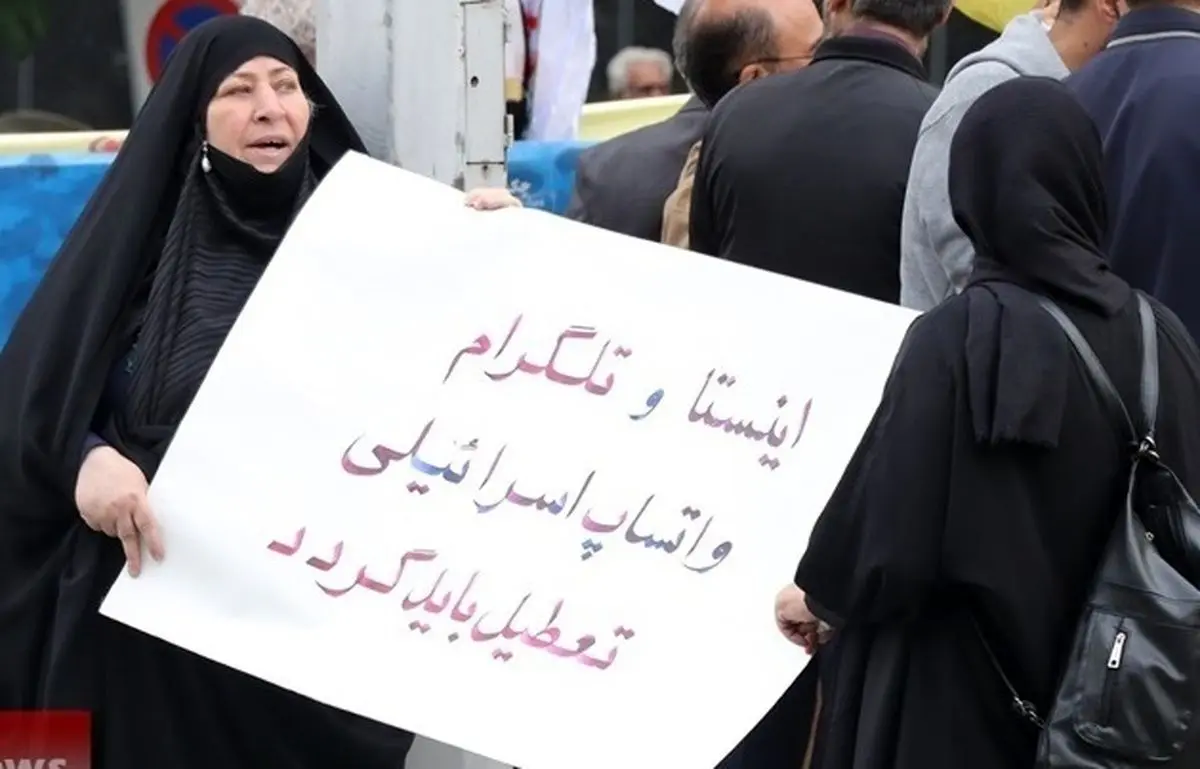 اینستا و تلگرام
واتساپ اسرائیلی
تعطیل باید گردد